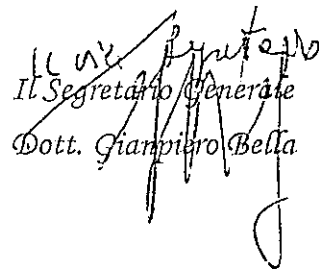 Il Vice Segretario
Il Segretario Generale
Dott. Gianpiero Bella